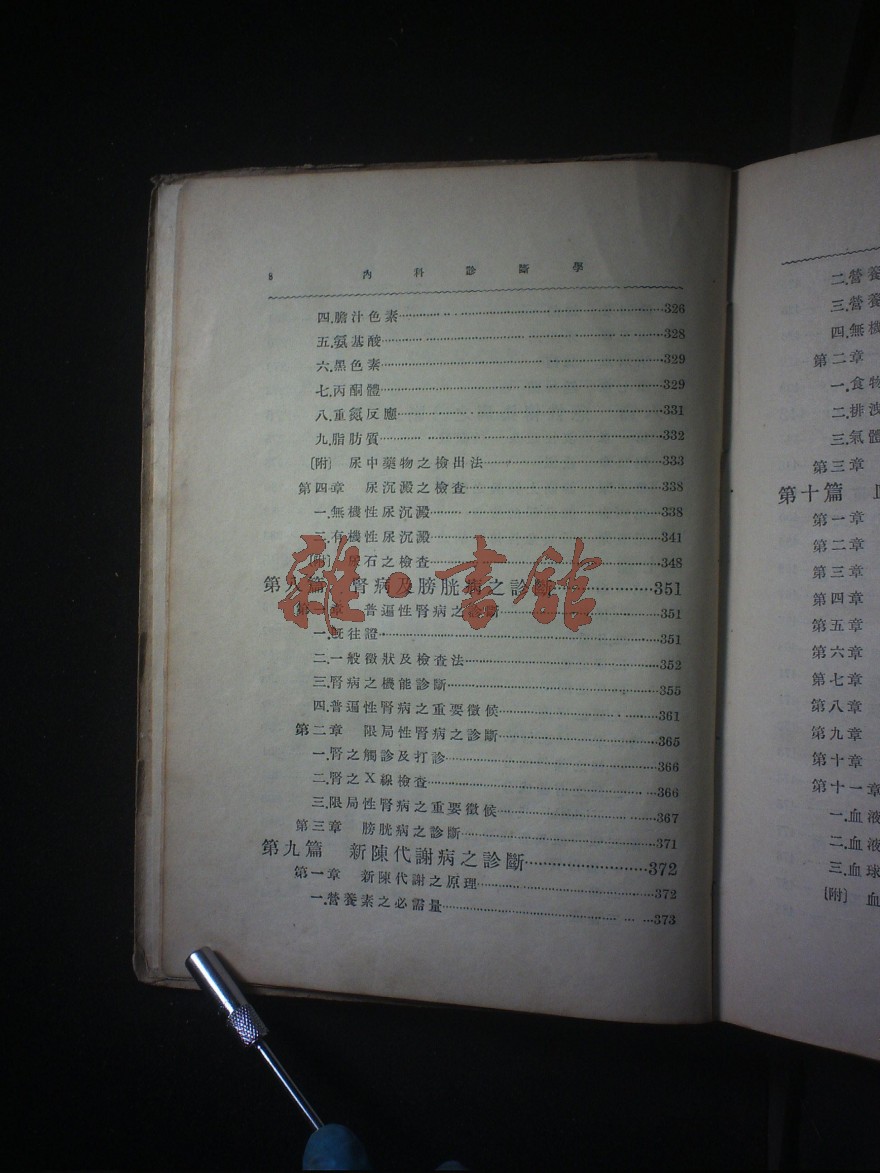 8 內科診斷學
四.膽汁色素……326
五.氨基酸……328
六.黑色素……329
七.丙酮體……329
八.重氮反應……331
九.脂肪質……332
〔附〕 尿中藥物之檢出法……333
第四章 尿沉澱之檢查……338
一.無機性尿沉澱……338
二.有機性尿沉澱……341
〔附〕尿石之檢查……348
第八篇 腎病及膀胱病之診斷……351
第一章 普遍性腎病之診斷……351
一.旣往證……351
二.一般徵狀及檢查法……352
三.腎病之機能診斷……355
四.普遍性腎病之重要徵候……361
第二章 限局性腎病之診斷……365
一.腎之觸診及打診……366
二.腎之X線檢查……366
三.限局性腎病之重要徵候……367
第三章 膀胱病之診斷……371
第九篇 新陳代謝病之診斷……372
第一章 新陳代謝之原理……372
一.營養素之必需量……373
雜·書館
二.營養
三.營養
四.無機
第二章
一.食物
二.排洩
三.氣體
第三章
第十篇
第一章
第二章
第三章
第四章
第五章
第六章
第七章
第八章
第九章
第十章
第十一章
一.血液
二.血液
三.血球
〔附〕 血